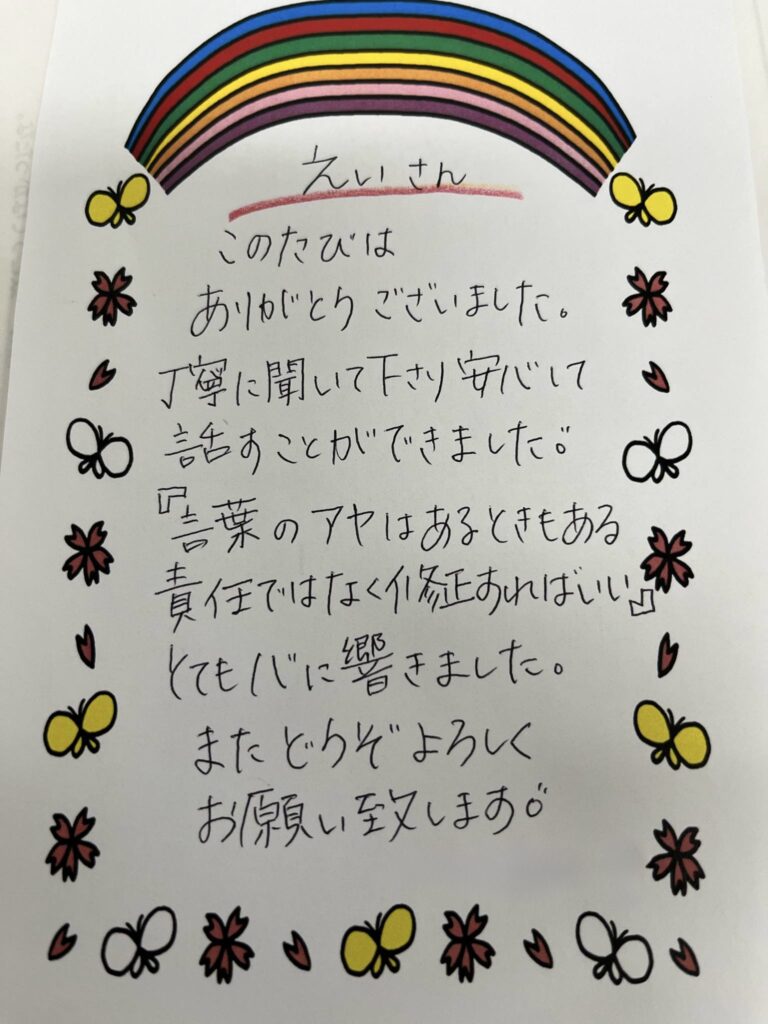 えいさん
このたびは
ありがとうございました。
丁寧に聞いて下さり安心して
話すことができました。
『言葉のアヤはあるときもある
責任ではなく修正すればいい』
とても心に響きました。
またどうぞよろしく
お願い致します。